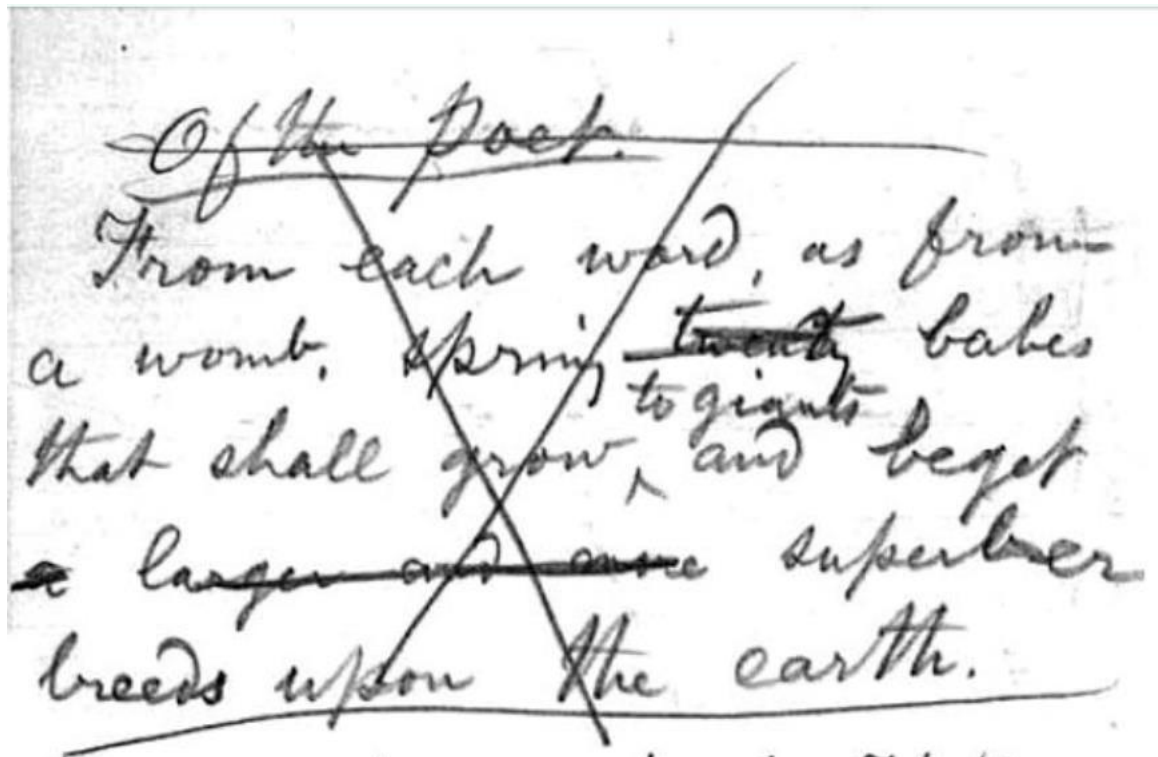 Of the Poet.
From each word, as from
a womb, spring twenty babes
to giants
that shall grow, ‸ and beget
a larger and more superber
breeds upon the earth.